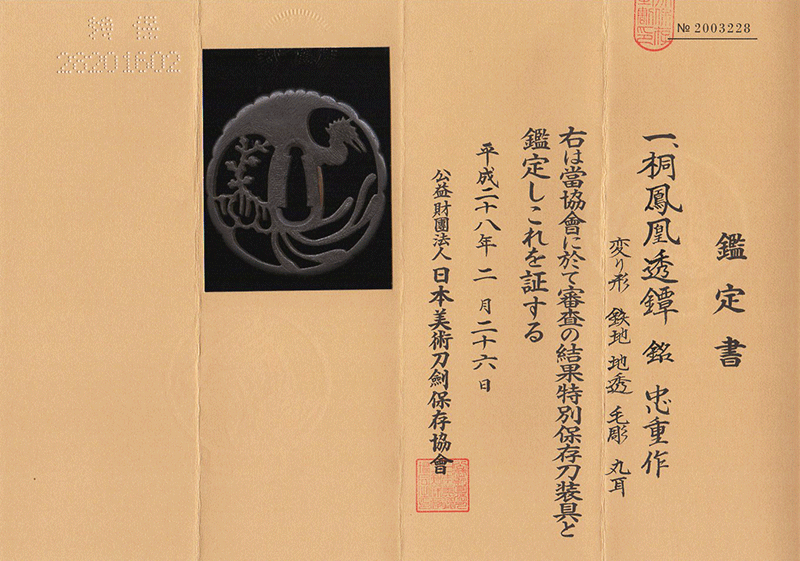 № 2003228
鑑定書
一、桐鳳凰透鐔 銘 忠重作
変り形 鉄地 地透 毛彫 丸耳
右は當協會に於て審査の結果特別保存刀装具と
鑑定しこれを証する
平成二十八年 二月二十六日
公益財團法人 日本美術刀劍保存協會
特保
28201602